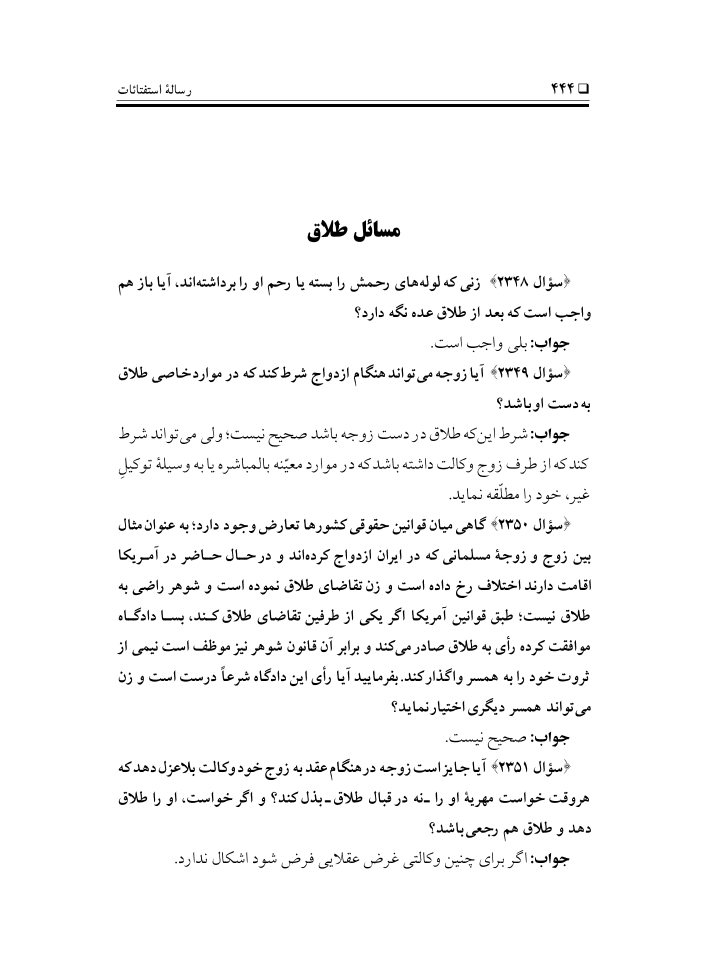 ❑ ۴۴۴ رسالهٔ استفتائات
مسائل طلاق
﴿سؤال ۲۳۴۸﴾ زنی که لوله‌های رحمش را بسته یا رحم او را برداشته‌اند، آیا باز هم
واجب است که بعد از طلاق عده نگه دارد؟
جواب: بلی واجب است.
﴿سؤال ۲۳۴۹﴾ آیا زوجه می‌تواند هنگام ازدواج شرط کند که در موارد خاصی طلاق
به دست او باشد؟
جواب: شرط این‌که طلاق در دست زوجه باشد صحیح نیست؛ ولی می‌تواند شرط
کند که از طرف زوج وکالت داشته باشد که در موارد معیّنه بالمباشره یا به وسیلهٔ توکیلِ
غیر، خود را مطلّقه نماید.
﴿سؤال ۲۳۵۰﴾ گاهی میان قوانین حقوقی کشورها تعارض وجود دارد؛ به عنوان مثال
بین زوج و زوجهٔ مسلمانی که در ایران ازدواج کرده‌اند و در حال حاضر در آمریکا
اقامت دارند اختلاف رخ داده است و زن تقاضای طلاق نموده است و شوهر راضی به
طلاق نیست؛ طبق قوانین آمریکا اگر یکی از طرفین تقاضای طلاق کند، بسا دادگاه
موافقت کرده رأی به طلاق صادر می‌کند و برابر آن قانون شوهر نیز موظف است نیمی از
ثروت خود را به همسر واگذار کند. بفرمایید آیا رأی این دادگاه شرعاً درست است و زن
می‌تواند همسر دیگری اختیار نماید؟
جواب: صحیح نیست.
﴿سؤال ۲۳۵۱﴾ آیا جایز است زوجه در هنگام عقد به زوج خود وکالت بلاعزل دهد که
هر وقت خواست مهریهٔ او را ـ نه در قبال طلاق ـ بذل کند؟ و اگر خواست، او را طلاق
دهد و طلاق هم رجعی باشد؟
جواب: اگر برای چنین وکالتی غرض عقلایی فرض شود اشکال ندارد.